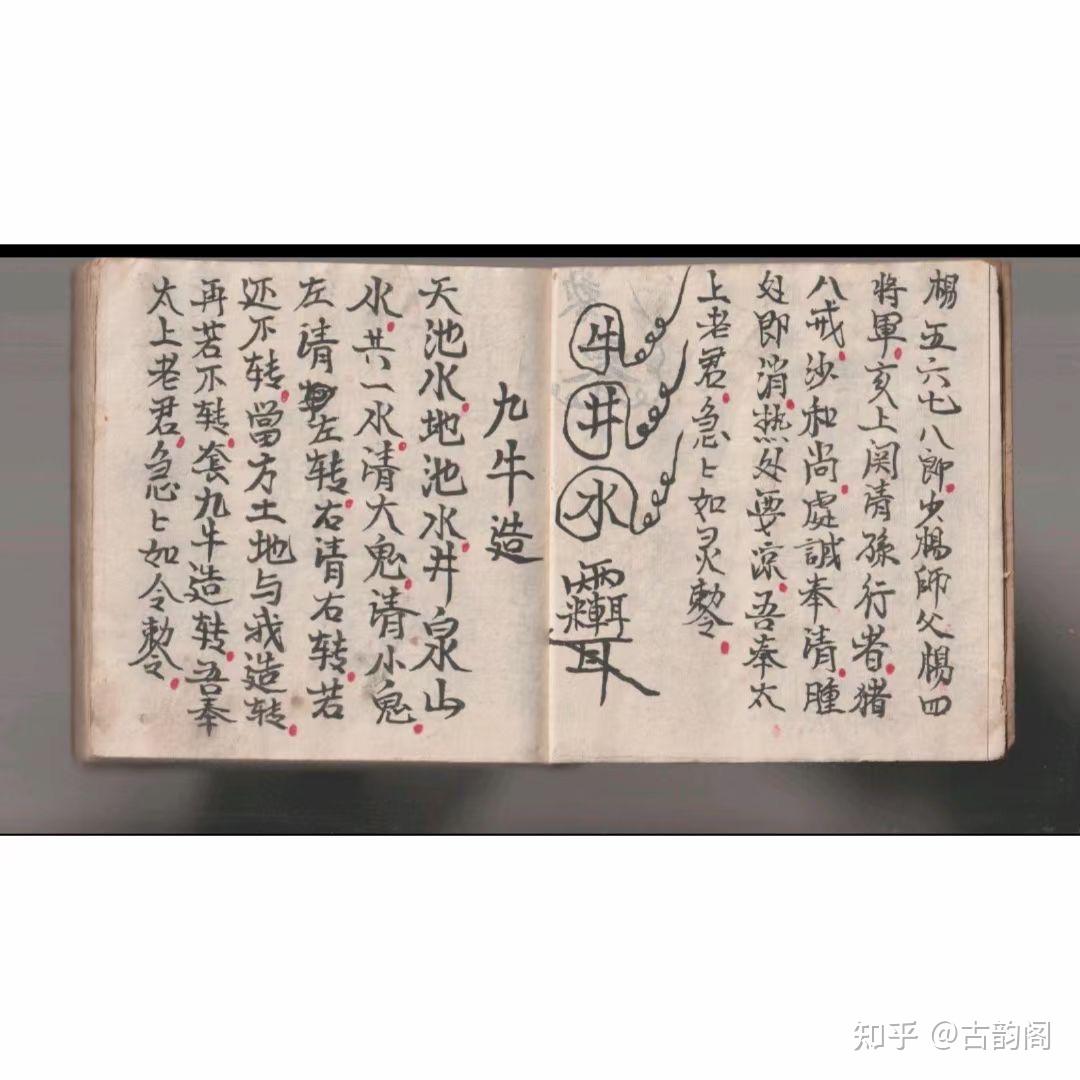 楊五六七八郎少楊師父楊四
將軍亥上関清孫行者猪
八戒沙和尚處誠奉清腫
处即消热处要凉吾奉太
上老君急ヒ如灵敕令
牛
井
水
九牛造
天池水地池水井泉山
水共一水清大鬼清小鬼
左清左转右清右转若
还不转當方土地与我造转
再若不转套九牛造转吾奉
太上老君急ヒ如令敕令
知乎 @古韵阁